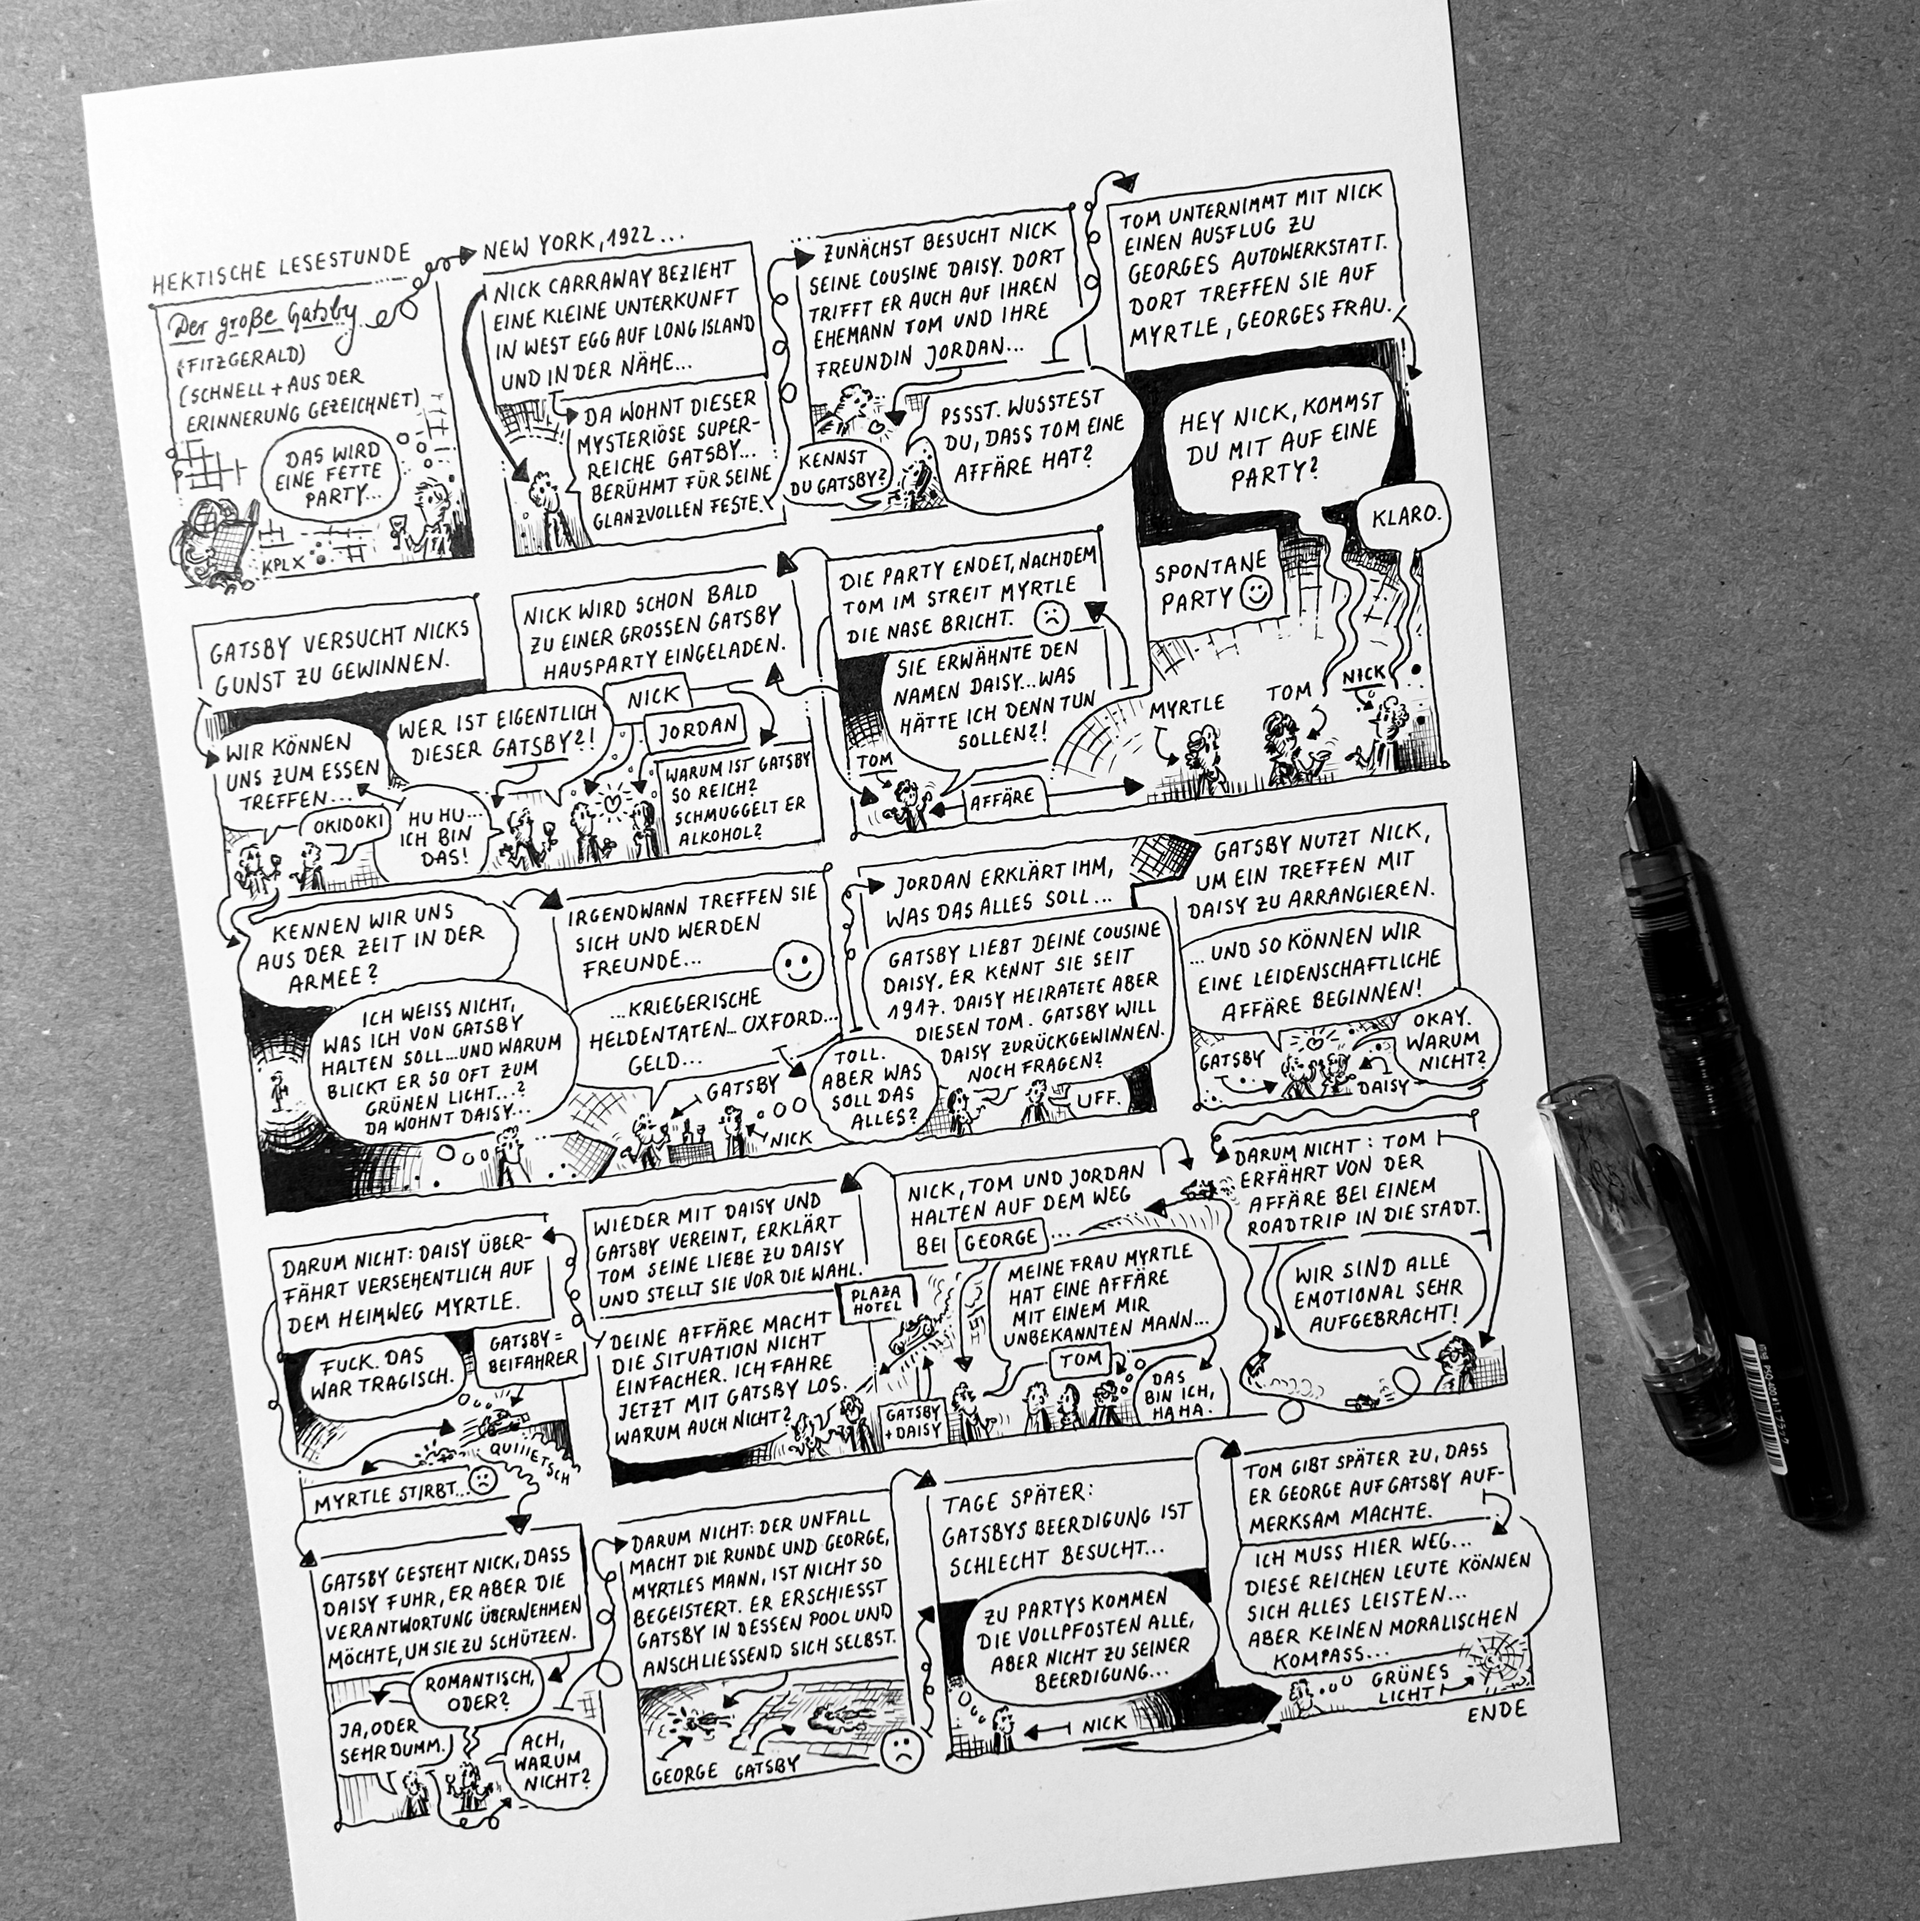 HEKTISCHE LESESTUNDE
Der große Gatsby
(FITZGERALD)
(SCHNELL + AUS DER
ERINNERUNG GEZEICHNET)
DAS WIRD
EINE FETTE
PARTY...
KPLX
NEW YORK, 1922...
NICK CARRAWAY BEZIEHT
EINE KLEINE UNTERKUNFT
IN WEST EGG AUF LONG ISLAND
UND IN DER NÄHE...
DA WOHNT DIESER
MYSTERIÖSE SUPER-
REICHE GATSBY...
BERÜHMT FÜR SEINE
GLANZVOLLEN FESTE.
ZUNÄCHST BESUCHT NICK
SEINE COUSINE DAISY. DORT
TRIFFT ER AUCH AUF IHREN
EHEMANN TOM UND IHRE
FREUNDIN JORDAN...
KENNST
DU GATSBY?
PSSST. WUSSTEST
DU, DASS TOM EINE
AFFÄRE HAT?
TOM UNTERNIMMT MIT NICK
EINEN AUSFLUG ZU
GEORGES AUTOWERKSTATT.
DORT TREFFEN SIE AUF
MYRTLE, GEORGES FRAU.
HEY NICK, KOMMST
DU MIT AUF EINE
PARTY?
KLARO.
SPONTANE
PARTY
MYRTLE
TOM
NICK
DIE PARTY ENDET, NACHDEM
TOM IM STREIT MYRTLE
DIE NASE BRICHT.
SIE ERWÄHNTE DEN
NAMEN DAISY...WAS
HÄTTE ICH DENN TUN
SOLLEN?!
TOM
AFFÄRE
NICK WIRD SCHON BALD
ZU EINER GROSSEN GATSBY
HAUSPARTY EINGELADEN.
NICK
JORDAN
WER IST EIGENTLICH
DIESER GATSBY?!
WARUM IST GATSBY
SO REICH?
SCHMUGGELT ER
ALKOHOL?
HU HU...
ICH BIN
DAS!
GATSBY VERSUCHT NICKS
GUNST ZU GEWINNEN.
WIR KÖNNEN
UNS ZUM ESSEN
TREFFEN...
OKIDOKI
KENNEN WIR UNS
AUS DER ZEIT IN DER
ARMEE?
ICH WEISS NICHT,
WAS ICH VON GATSBY
HALTEN SOLL...UND WARUM
BLICKT ER SO OFT ZUM
GRÜNEN LICHT...?
DA WOHNT DAISY...
IRGENDWANN TREFFEN SIE
SICH UND WERDEN
FREUNDE...
...KRIEGERISCHE
HELDENTATEN...OXFORD...
GELD...
GATSBY
NICK
TOLL.
ABER WAS
SOLL DAS
ALLES?
JORDAN ERKLÄRT IHM,
WAS DAS ALLES SOLL...
GATSBY LIEBT DEINE COUSINE
DAISY. ER KENNT SIE SEIT
1917. DAISY HEIRATETE ABER
DIESEN TOM. GATSBY WILL
DAISY ZURÜCKGEWINNEN.
NOCH FRAGEN?
UFF.
GATSBY NUTZT NICK,
UM EIN TREFFEN MIT
DAISY ZU ARRANGIEREN.
...UND SO KÖNNEN WIR
EINE LEIDENSCHAFTLICHE
AFFÄRE BEGINNEN!
OKAY.
WARUM
NICHT?
GATSBY
DAISY
DARUM NICHT: TOM
ERFÄHRT VON DER
AFFÄRE BEI EINEM
ROADTRIP IN DIE STADT.
WIR SIND ALLE
EMOTIONAL SEHR
AUFGEBRACHT!
NICK, TOM UND JORDAN
HALTEN AUF DEM WEG
BEI GEORGE...
MEINE FRAU MYRTLE
HAT EINE AFFÄRE
MIT EINEM MIR
UNBEKANNTEN MANN...
TOM
DAS
BIN ICH,
HAHA.
GATSBY
+ DAISY
PLAZA
HOTEL
WIEDER MIT DAISY UND
GATSBY VEREINT, ERKLÄRT
TOM SEINE LIEBE ZU DAISY
UND STELLT SIE VOR DIE WAHL.
DEINE AFFÄRE MACHT
DIE SITUATION NICHT
EINFACHER. ICH FAHRE
JETZT MIT GATSBY LOS.
WARUM AUCH NICHT?
DARUM NICHT: DAISY ÜBER-
FÄHRT VERSEHENTLICH AUF
DEM HEIMWEG MYRTLE.
FUCK. DAS
WAR TRAGISCH.
GATSBY =
BEIFAHRER
QUIIIETSCH
MYRTLE STIRBT...
GATSBY GESTEHT NICK, DASS
DAISY FUHR, ER ABER DIE
VERANTWORTUNG ÜBERNEHMEN
MÖCHTE, UM SIE ZU SCHÜTZEN.
ROMANTISCH,
ODER?
JA, ODER
SEHR DUMM.
ACH,
WARUM
NICHT?
DARUM NICHT: DER UNFALL
MACHT DIE RUNDE UND GEORGE,
MYRTLES MANN, IST NICHT SO
BEGEISTERT. ER ERSCHIESST
GATSBY IN DESSEN POOL UND
ANSCHLIESSEND SICH SELBST.
GEORGE GATSBY
TAGE SPÄTER:
GATSBYS BEERDIGUNG IST
SCHLECHT BESUCHT...
ZU PARTYS KOMMEN
DIE VOLLPFOSTEN ALLE,
ABER NICHT ZU SEINER
BEERDIGUNG...
NICK
TOM GIBT SPÄTER ZU, DASS
ER GEORGE AUF GATSBY AUF-
MERKSAM MACHTE.
ICH MUSS HIER WEG...
DIESE REICHEN LEUTE KÖNNEN
SICH ALLES LEISTEN...
ABER KEINEN MORALISCHEN
KOMPASS...
GRÜNES
LICHT
ENDE